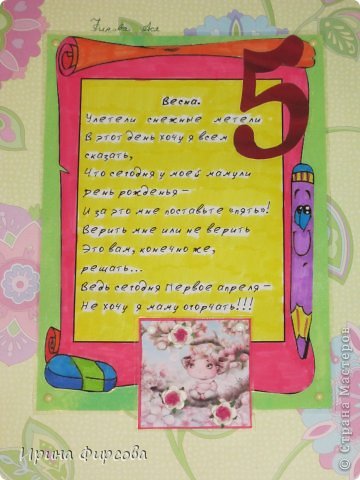 5
Весна.
Улетели снежные метели
В этот день хочу я всем
сказать,
Что сегодня у моей мамули
День рожденья –
И за это мне поставьте «пять»!
Верить мне или не верить
Это вам, конечно же,
решать...
Ведь сегодня Первое апреля –
Не хочу я маму огорчать!!!
Ирина Фирсова
© Страна Мастеров